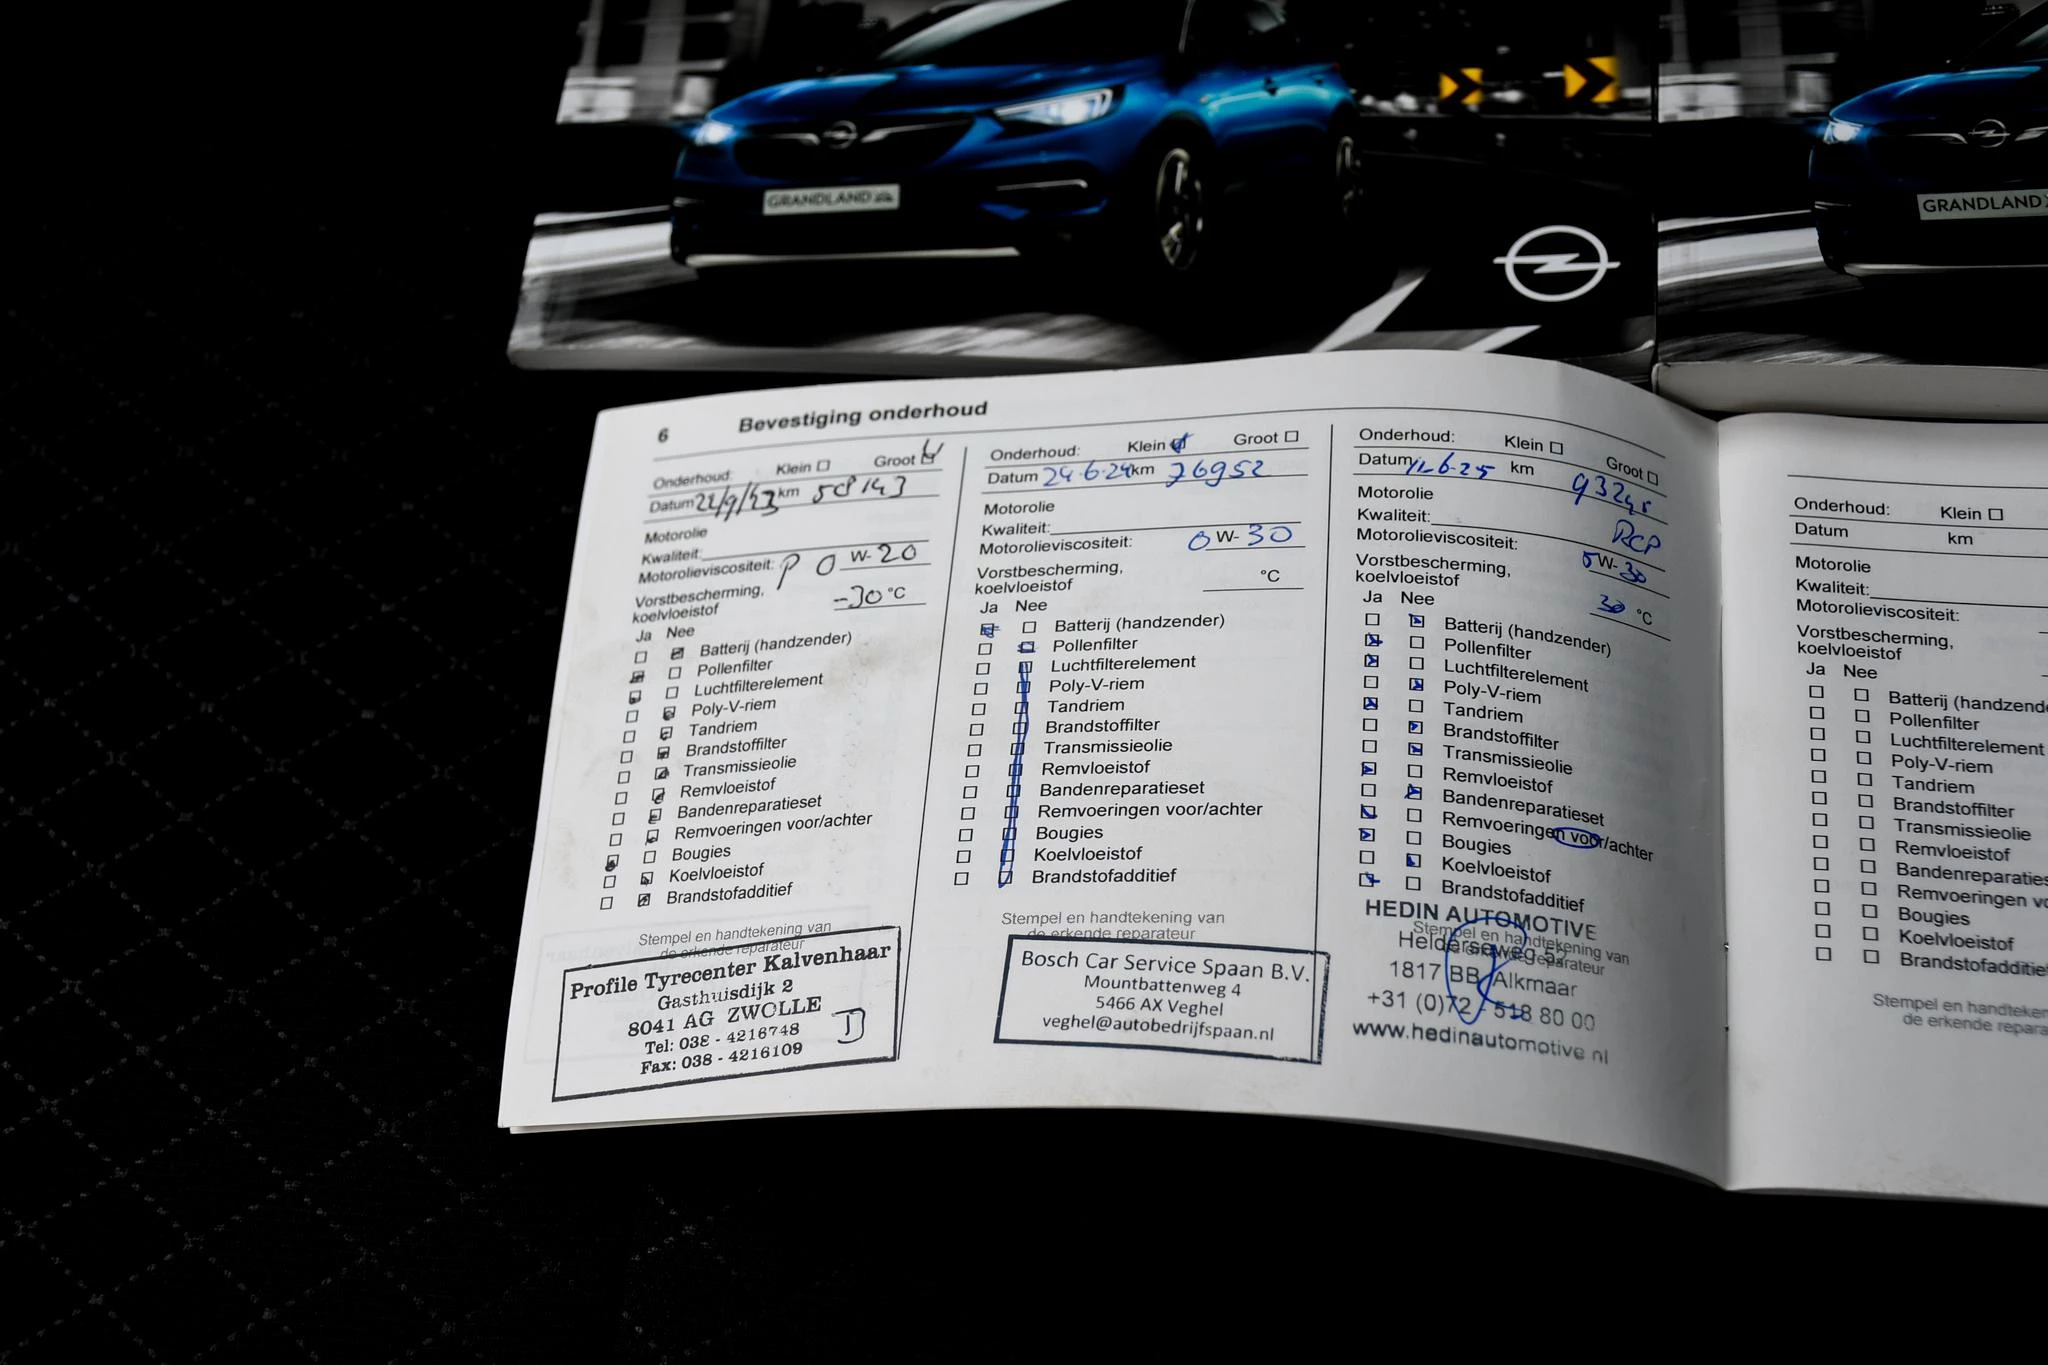 GRANDLAND X
GRANDLAND X
6 Bevestiging onderhoud
Onderhoud: Klein Groot
Datum 22/9/23 km 58143
Motorolie
Kwaliteit:
Motorolieviscositeit: P 0 W- 20
Vorstbescherming,
koelvloeistof -30 °C
Ja Nee
Batterij (handzender)
Pollenfilter
Luchtfilterelement
Poly-V-riem
Tandriem
Brandstoffilter
Transmissieolie
Remvloeistof
Bandenreparatieset
Remvoeringen voor/achter
Bougies
Koelvloeistof
Brandstofadditief
Stempel en handtekening van
de erkende reparateur
Profile Tyrecenter Kalvenhaar
Gasthuisdijk 2
8041 AG ZWOLLE
Tel: 038 - 4216748
Fax: 038 - 4216109
Onderhoud: Klein Groot
Datum 24-6-24 km 76952
Motorolie
Kwaliteit:
Motorolieviscositeit: 0 W- 30
Vorstbescherming,
koelvloeistof °C
Ja Nee
Batterij (handzender)
Pollenfilter
Luchtfilterelement
Poly-V-riem
Tandriem
Brandstoffilter
Transmissieolie
Remvloeistof
Bandenreparatieset
Remvoeringen voor/achter
Bougies
Koelvloeistof
Brandstofadditief
Stempel en handtekening van
de erkende reparateur
Bosch Car Service Spaan B.V.
Mountbattenweg 4
5466 AX Veghel
veghel@autobedrijfspaan.nl
Onderhoud: Klein Groot
Datum km
Motorolie
Kwaliteit: RCP
Motorolieviscositeit: 5 W- 30
Vorstbescherming,
koelvloeistof 30 °C
Ja Nee
Batterij (handzender)
Pollenfilter
Luchtfilterelement
Poly-V-riem
Tandriem
Brandstoffilter
Transmissieolie
Remvloeistof
Bandenreparatieset
Remvoeringen voor/achter
Bougies
Koelvloeistof
Brandstofadditief
Stempel en handtekening van
de erkende reparateur
HEDIN AUTOMOTIVE
Helderseweg 52
1817 BB Alkmaar
+31 (0)72 - 518 80 00
www.hedinautomotive.nl
Onderhoud: Klein
Datum km
Motorolie
Kwaliteit:
Motorolieviscositeit:
Vorstbescherming,
koelvloeistof
Ja Nee
Batterij (handzende
Pollenfilter
Luchtfilterelement
Poly-V-riem
Tandriem
Brandstoffilter
Transmissieolie
Remvloeistof
Bandenreparaties
Remvoeringen vo
Bougies
Koelvloeistof
Brandstofadditie
Stempel en handteken
de erkende repara